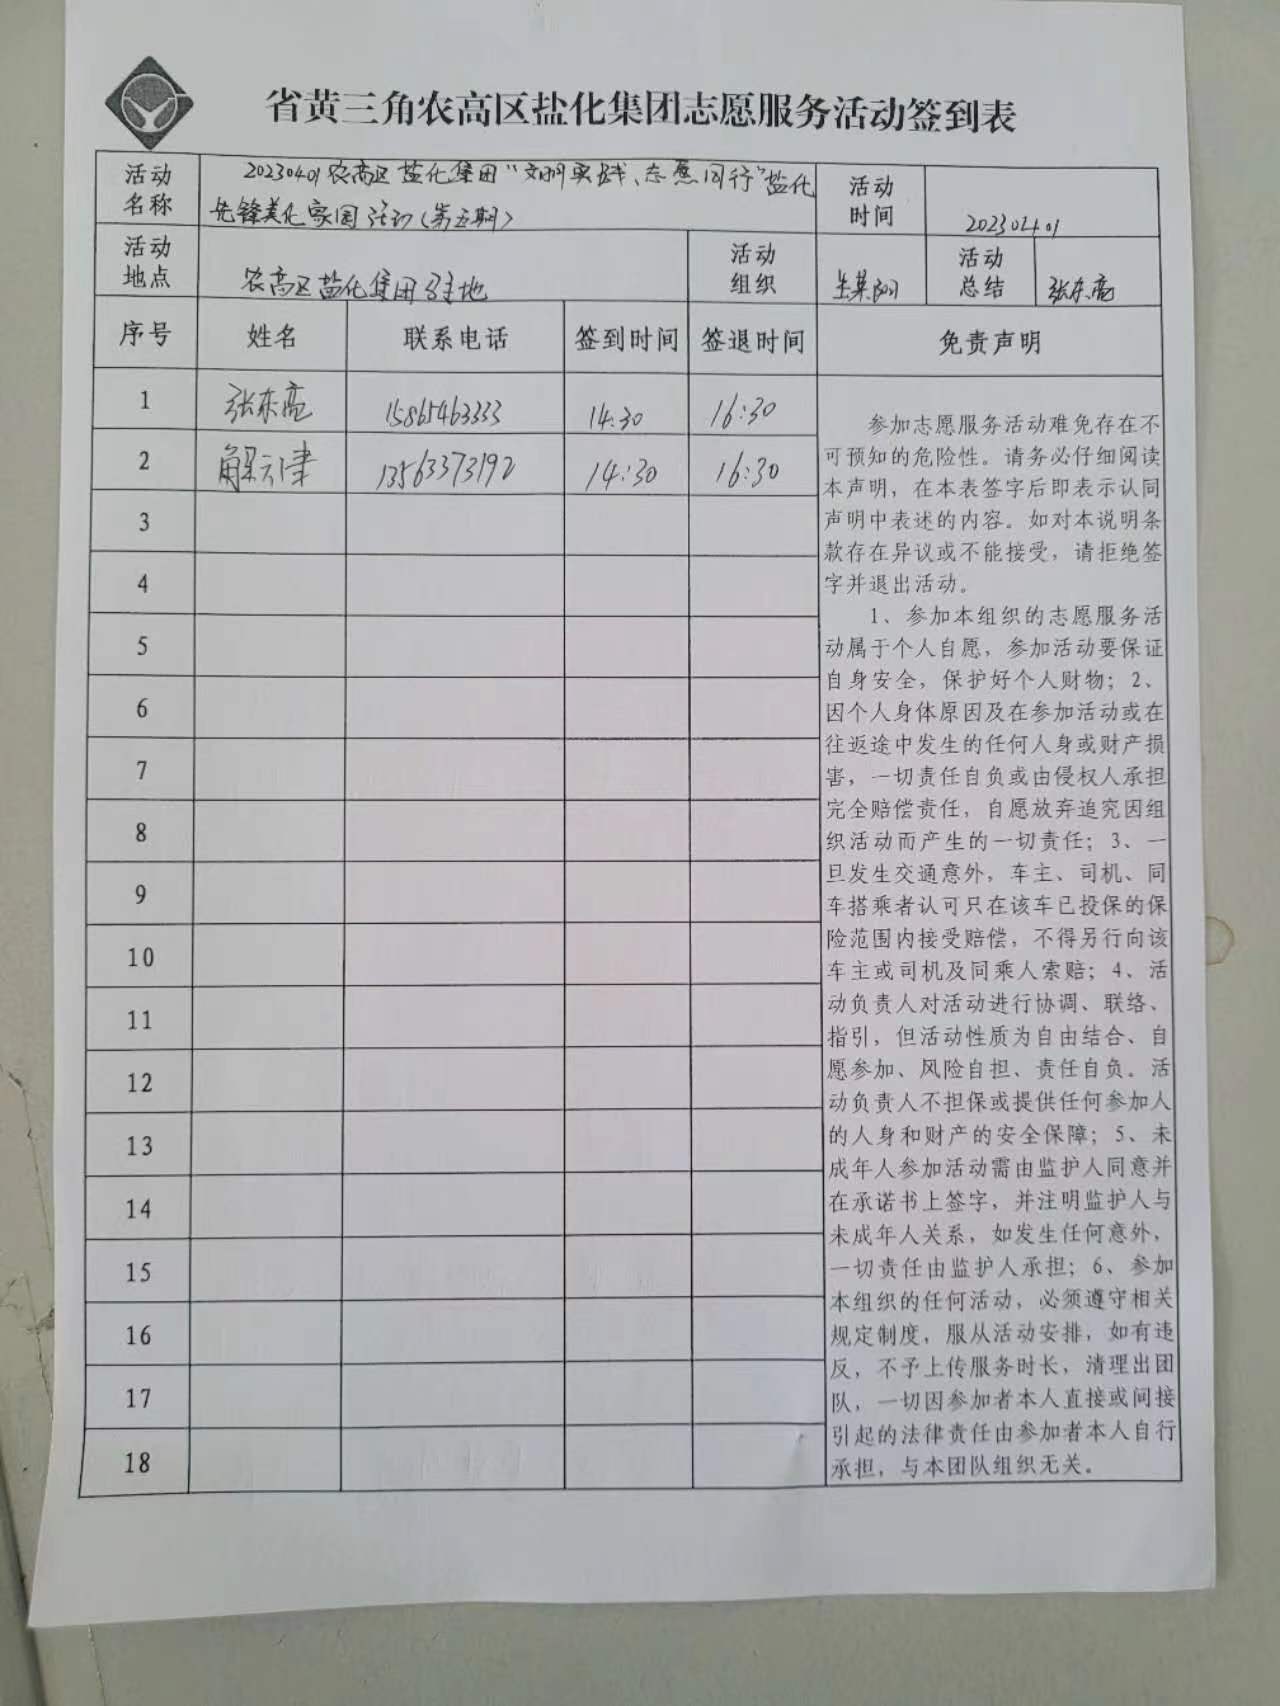 省黄三角农高区盐化集团志愿服务活动签到表
活动名称
20230401农高区盐化集团“文明实践、志愿同行”盐化
先锋美化家园活动(第五期)
活动时间
20230401
活动地点
农高区盐化集团驻地
活动组织
活动总结
张东亮
序号 姓名 联系电话 签到时间 签退时间 免责声明
1 张东亮 15865463333 14:30 16:30
2 解云津 13563373192 14:30 16:30
3
4
5
6
7
8
9
10
11
12
13
14
15
16
17
18
参加志愿服务活动难免存在不
可预知的危险性。请务必仔细阅读
本声明，在本表签字后即表示认同
声明中表述的内容。如对本说明条
款存在异议或不能接受，请拒绝签
字并退出活动。
1、参加本组织的志愿服务活
动属于个人自愿，参加活动要保证
自身安全，保护好个人财物；2、
因个人身体原因及在参加活动或在
往返途中发生的任何人身或财产损
害，一切责任自负或由侵权人承担
完全赔偿责任，自愿放弃追究因组
织活动而产生的一切责任；3、一
旦发生交通意外，车主、司机、同
车搭乘者认可只在该车已投保的保
险范围内接受赔偿，不得另行向该
车主或司机及同乘人索赔；4、活
动负责人对活动进行协调、联络、
指引，但活动性质为自由结合、自
愿参加、风险自担、责任自负。活
动负责人不担保或提供任何参加人
的人身和财产的安全保障；5、未
成年人参加活动需由监护人同意并
在承诺书上签字，并注明监护人与
未成年人关系，如发生任何意外，
一切责任由监护人承担；6、参加
本组织的任何活动，必须遵守相关
规定制度，服从活动安排，如有违
反，不予上传服务时长，清理出团
队，一切因参加者本人直接或间接
引起的法律责任由参加者本人自行
承担，与本团队组织无关。